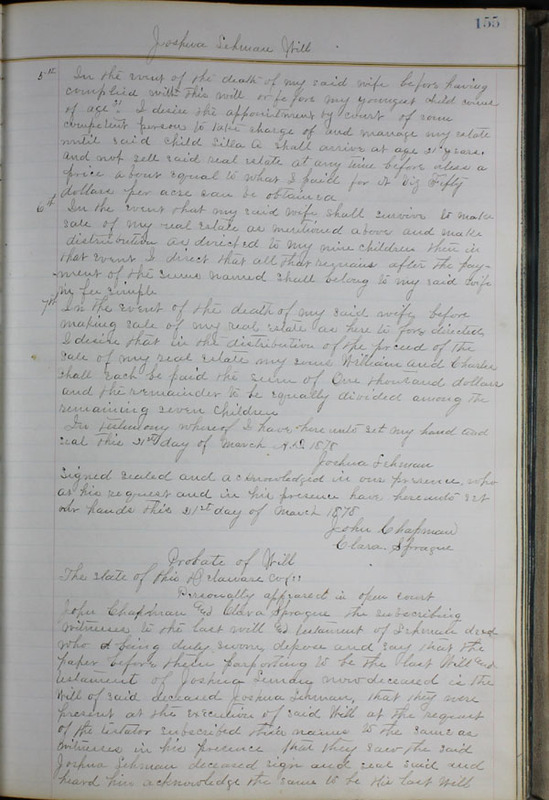 155
Joshua Lehman Will
5th In the event of the death of my said wife before having
complied with this will or before my youngest child comes
of age I desire the appointment by court of some
competent persons to take charge of and manage my estate
until said child Silla A shall arrive at age 21 years
and not sell said real estate at any time before unless a
price about equal to what I paid for it Viz Fifty
dollars per acre can be obtained
6th In the event that my said wife shall survive to make
sale of my real estate as mentioned above and make
distribution as directed to my nine children then in
that event I direct that all that remains after the pay-
-ment of the sums named shall belong to my said wife
in fee simple
7th In the event of the death of my said wife before
making sale of my real estate as here to fore directed
I desire that in the distribution of the proceed of the
sale of my real estate my sons William and Charles
shall each be paid the sum of One thousand dollars
and the remainder to be equally divided among the
remaining seven children
In testimony whereof I have here unto set my hand and
seal this 21st day of March A.D. 1878
Joshua Lehman
Signed sealed and acknowledged in our presence, who
at his request and in his presence have hereunto set
our hands this 21st day of March 1878
John Chapman
Clara Sprague
Probate of Will
The State of Ohio Delaware Co ss
Personally appeared in open court
John Chapman & Clara Sprague the subscribing
witnesses to the last will & testament of Lehman decd
who being duly sworn depose and say that the
paper before them purporting to be the last Will &
testament of Joshua Leman now deceased is the
Will of said deceased Joshua Lehman, that they were
present at the execution of said Will at the request
of the testator subscribed their names to the same as
witnesses in his presence that they saw the said
Joshua Lehman deceased sign and seal said and
heard him acknowledge the same to be his last Will